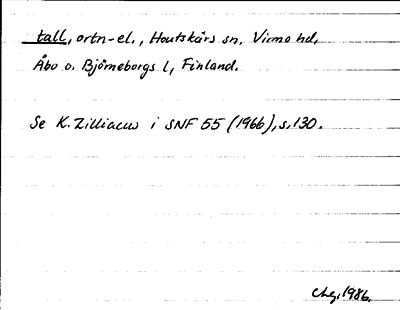 tall, ortn-el., Houtskärs sn, Virmo hd,
Åbo o. Björneborgs l, Finland.
Se K. Zilliacus i SNF 55 (1966), s. 130.
1986.